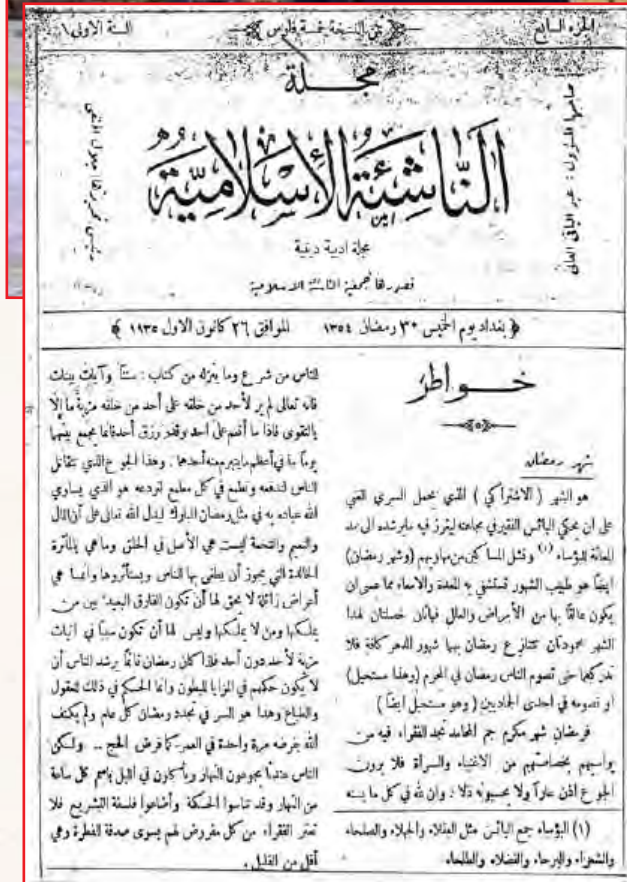 الجزء السابع
ثمن النسخة خمسة فلوس
السنة الاولى
مجلة
النَّاشِئَةُ الأِسْلَامِيَّة
صاحبها المسؤول: عبد الباقي العاني
مجلة ادبية دينية
تصدرها جمعية الناشئة الاسلامية
بغداد يوم الخميس ٣٠ رمضان ١٣٥٤ الموافق ٢٦ كانون الاول ١٩٣٥
خـــواطر
شهر رمضان
هو الشهر ( الاشتراكي ) الذي يحمل السري الغني
على ان يحكي البائس الفقير في مجاعته ليقرز فيه ما يرشده الى سد
المعانة للبؤساء (١) ونشل المساكين من مهاويهم (وشهر رمضان)
ايضاً هو طبيب الشهور تستشفي به المعدة والامعاء مما عسى ان
يكون عالقاً بها من الأمراض والعلل فهاتان خصلتان لهذا
الشهر محمودتان تتنازع رمضان بهما شهور الدهر كافة فلا
تدركها حتى تصوم الناس رمضان في المحرم (وهذا مستحيل)
او تصومه في احدى الجمادين ( وهو مستحيل ايضاً )
فرمضان شهر مكرم جم المحامد تجد الفقراء فيه من
يواسيهم بخصاصتهم من الاغنياء والسراة فلا يرون
الجوع اذن عاراً ولا يحسبونه ذلا : وان لله في كل ما يسنه
(١) البؤساء جمع البائس مثل العقلاء والجهلاء والصلحاء
والشعراء والبرحاء والفضلاء والطلحاء
للناس من شرع وما ينزله من كتاب : سنناً وآيات بينات
فانه تعالى لم ير لأحد من خلقه على أحد من خلقه مزية ما إلا
بالتقوى فاذا ما أنعم على أحد وقدر رزق أحد فانما يجمع بينهما
يوماً ما في أعظم ما يتبرم منه أحدهما . وهذا الجوع الذي تتقاتل
الناس لتدفعه وتطمع في كل مطمع لتردعه هو الذي يساوي
الله عباده به في مثل رمضان المبارك ليدل الله تعالى على أن المال
والنعيم والنعمة ليست هي الأصل في الخلق وما هي بالمأثرة
الخالدة التي يجوز أن يطغى بها الناس ويستأثروها وانما هي
أعراض زائلة لا يحق لها أن تكون الفارق البعيد بين من
يملكها ومن لا يملكها وليس لها أن تكون سبباً في اثبات
مزية لأحد دون أحد فاذا كان رمضان قائماً يرشد الناس أن
لا يكون حكمهم في المزايا للبطون وانما الحكم في ذلك للعقول
والطباع وهذا هو السر في تجدد رمضان كل عام ولم يكتف
الله بفرضه مرة واحدة في العمر كما فرض الحج .. ولكن
الناس عندنا يجوعون النهار ويأكلون في الليل باسم كل ساعة
من النهار وقد تناسوا الحكمة وأضاعوا فلسفة التشريع فلا
تعتر الفقراء من كل مفروض لهم سوى صدقة الفطرة وهي
أقل من القليل .